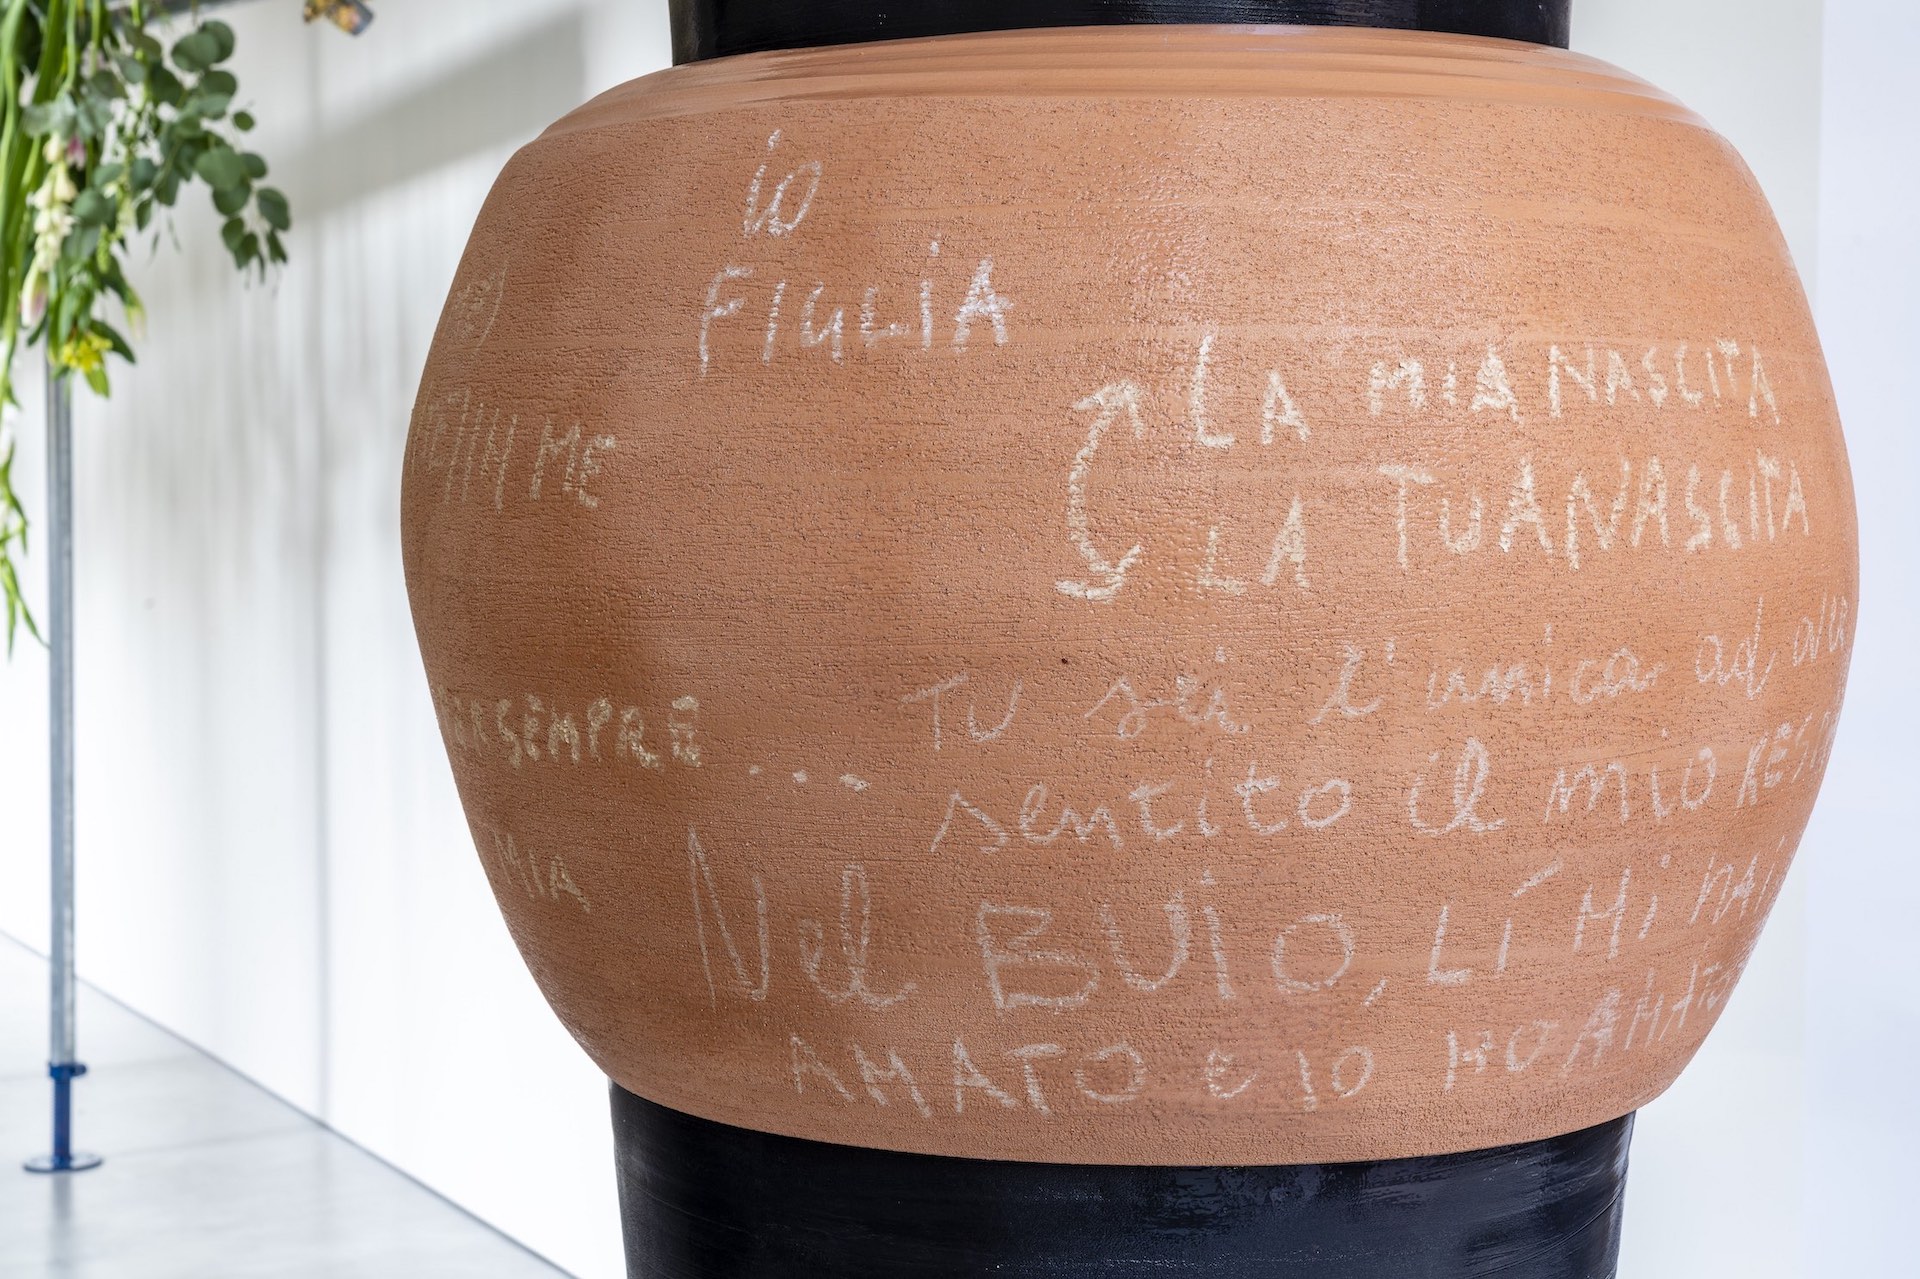 io
FIGLIA
LA MIA NASCITA
LA TUA NASCITA
ME
PERSEMPRE ....
TU sei l'unica ad aver
sentito il mio
MIA
Nel BUIO, LÍ Mi
AMATO e IO HO AMATO